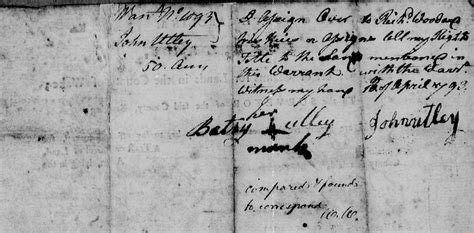 Warr No 1093
John Utley
50 Acrs
I Assign Over to Richd Woodard
his Heirs or Assigns all my Right
Title to the Land mentioned in
this Warrant with the
Witness my hand of April 1793
her
Betsy Lulley
mark
John utley
compared & found
to correspond